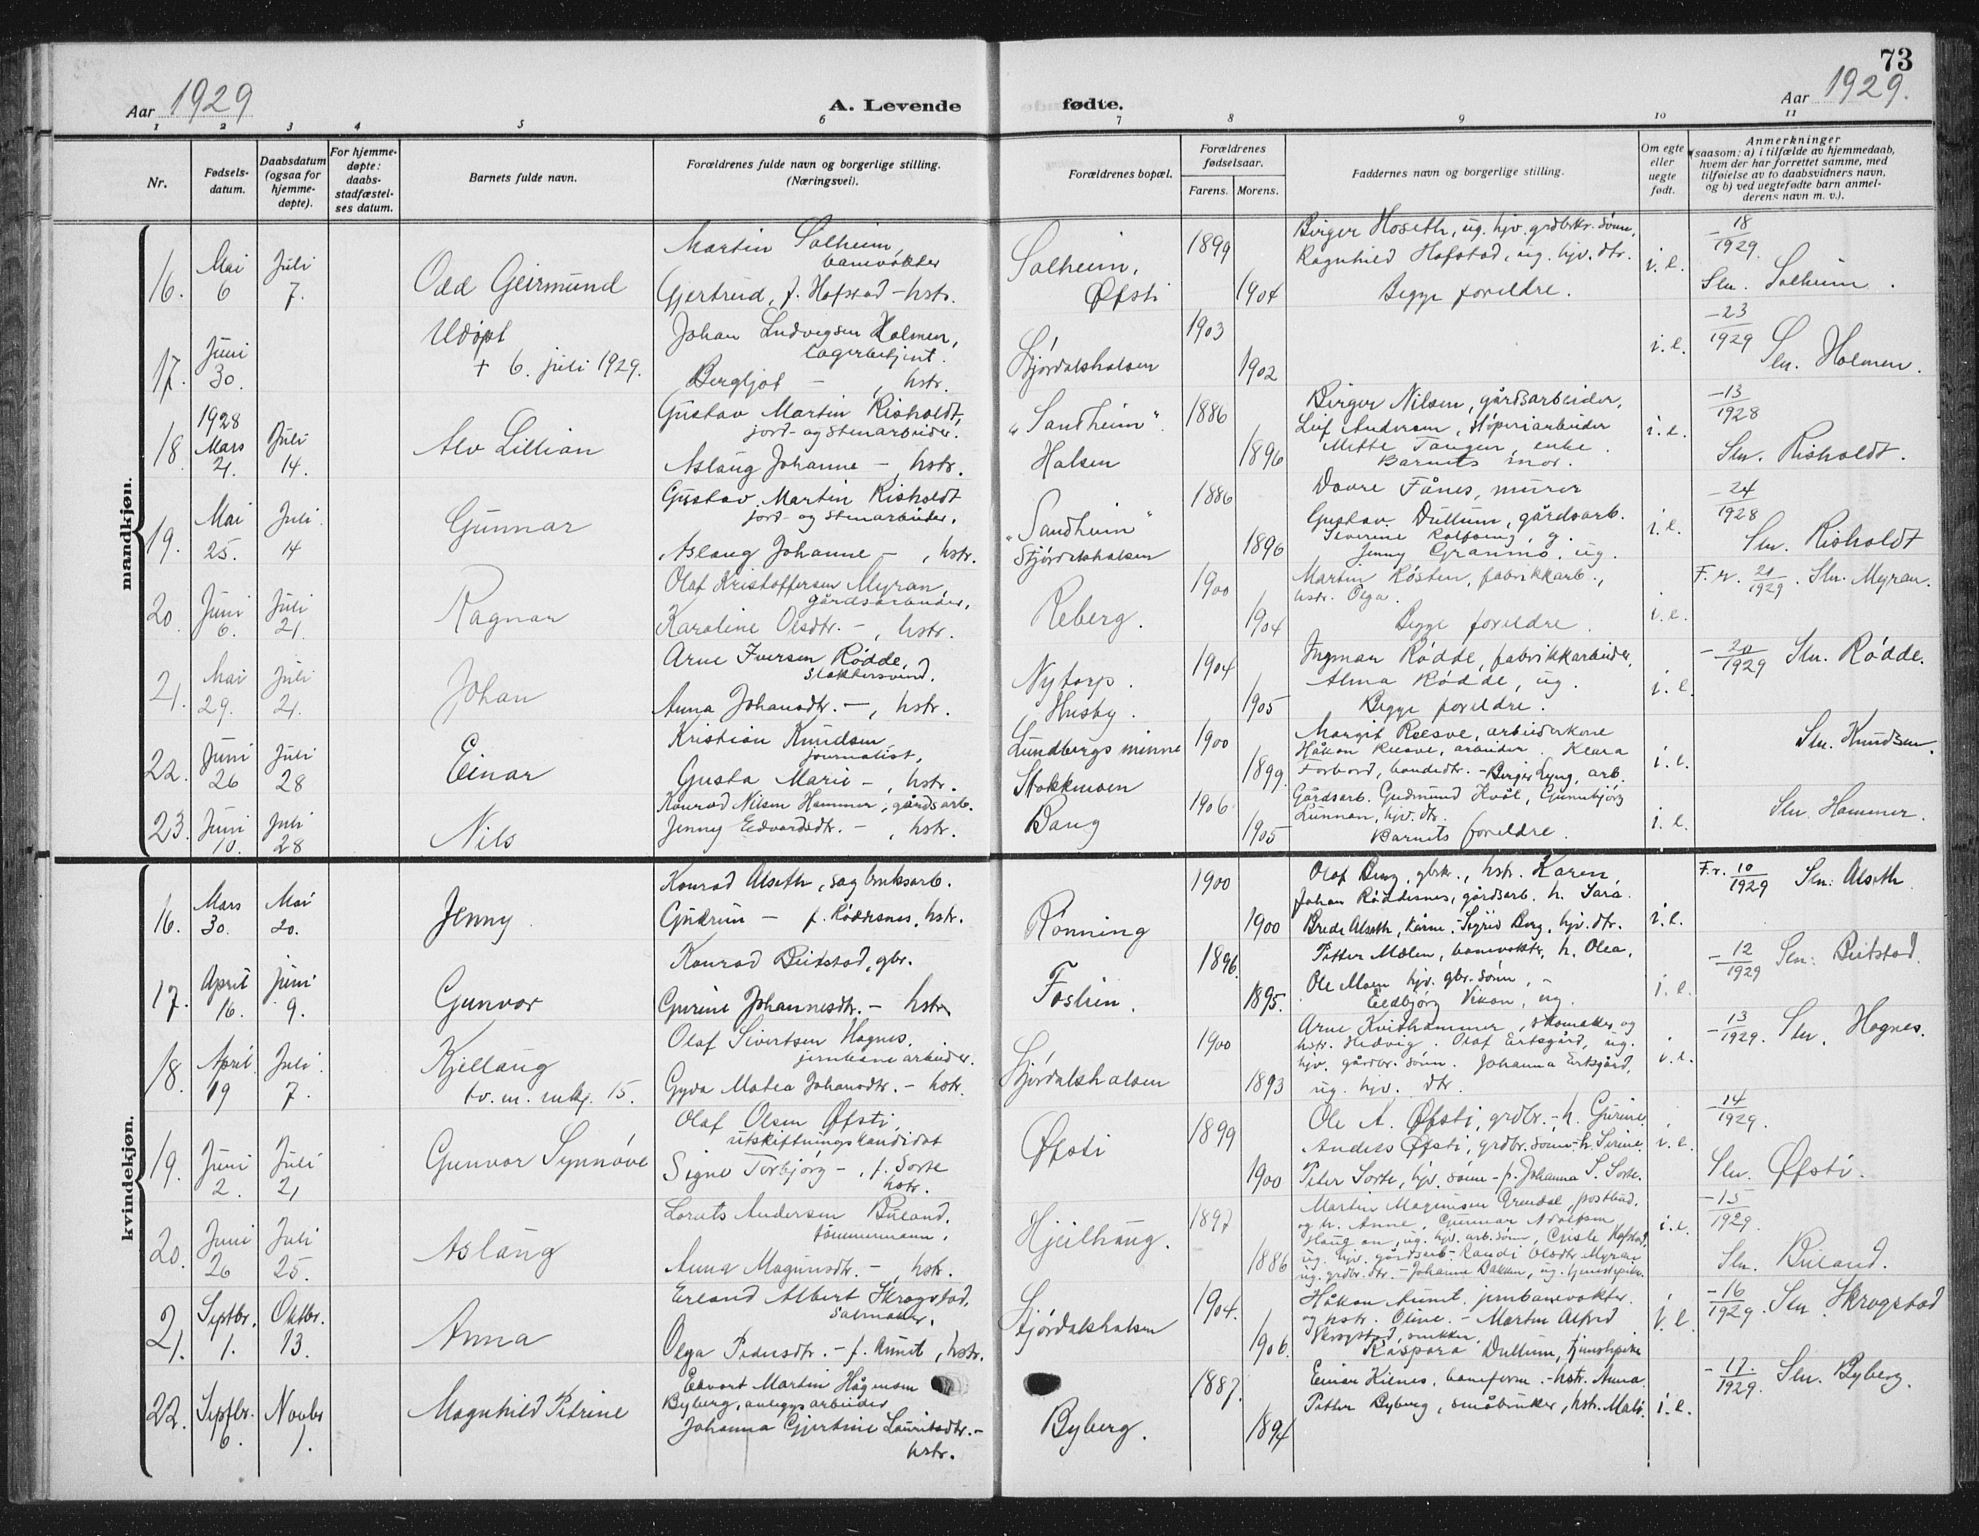 73
Aar 1929
A. Levende
fødte.
Aar 1929.
1 2 3 4 5 6 7 8 9 10 11
Nr.
Fødsels-
datum.
Daabsdatum
(ogsaa for
hjemme-
døpte).
For hjemme-
døpte:
daabs-
stadfæstel-
ses datum.
Barnets fulde navn.
Forældrenes fulde navn og borgerlige stilling.
(Næringsvei).
Forældrenes bopæl.
Forældrenes
fødselsaar.
Farens. Morens.
Faddernes navn og borgerlige stilling.
Om egte
eller
uegte
født.
Anmerkninger
saasom: a) i tilfælde av hjemmedaab,
hvem der har forrettet samme, med
tilføielse av to daabsvidners navn,
og b) ved uegtefødte barn anmel-
derens navn m. v.).
mandkjøn.
16.
Mai
6
Juli
7.
Odd Geirmund
Martin Solheim,
banevokter
Gjertrud, f. Hofstad - hstr.
Solheim,
Øfsti
1899
1904
Birger Hoseth, ug. hjv. grdbrkr. sønn,
Ragnhild Hofstad, ug. hjv. dtr.
Begge foreldre.
i. e.
- 18
1929
Sln. Solheim.
17.
Juni
30.
Udøpt
+ 6. juli 1929.
Johan Ludvigsen Holmen,
lagerbetjent.
Bergljot - , hstr.
Stjørdalshalsen
1903
1902
i. e.
- 23
1929
Sln. Holmen.
18.
1928
Mars
21.
Juli
14.
Alv Lillian
Gustav Martin Risholdt,
jord- og stenarbeider.
Aslaug Johanne - , hstr.
"Sandheim".
Halsen
1886
1896
Birger Nilsen, gårdsarbeider,
Leif Andersen, støperiarbeider
Mette Tangen, enke.
Barnets mor.
i. e.
- 13
1928
Sln. Risholdt.
19.
Mai
25.
Juli
14
Gunnar
Gustav Martin Risholdt
jord- og stenarbeider.
Aslaug Johanne - , hstr.
"Sandheim"
Stjørdalshalsen
1886
1896
Dovre Fånes, murer
Gustav Dullum, gårdsarb.
Jenny Granmo, ug.
i. e.
- 24
1928
Sln. Risholdt
20.
Juni
6.
Juli
21.
Ragnar
Olaf Kristoffersen Myran,
gårdsarbeider,
Karoline Olsdtr. - , hstr.
Reberg.
1900
1904
Martin Røsten, fabrikkarb.,
hstr. Olga.
Begge foreldre.
i. e.
F. r. 21
1929. Sln. Myran.
21.
Mai
29.
Juli
21.
Johan
Arne Iversen Rødde,
slaktersvend.
Anna Johansdtr. - , hstr.
Nytorp.
Husby.
1904
1905
Ingman Rødde, fabrikkarbeider,
Alma Rødde, ug.
Begge foreldre.
i. e.
- 20
1929 Sln. Rødde.
22.
Juni
26
Juli
28
Einar
Kristian Knudsen
journalist,
Gusta Marie - , hstr.
Lundbergs minne
Stokkmoen
1900
1899.
Margit Reesve, arbeiderkone
Håkon Reesve, arbeider. Klara
Forbord, bondedtr. - Birger Lyng, arb.
i. e.
Sln. Knudsen.
23.
Juni
10.
Juli
28
Nils
Konrad Nilsen Hammer, gårdsarb.
Jenny Edvardsdtr. - , hstr.
Bang
1906
1905
Gårdsarb. Gudmund Kvål, Gunnbjørg
Lunnan, hjv. dtr.
Barnets foreldre.
i. e.
Sln. Hammer.
kvindekjøn.
16.
Mars
30.
Mai
20.
Jenny
Konrad Alseth, sagbruksarb.
Gudrun - f. Røddesnes, hstr.
Rønning
1900
1900
Olaf Berg, gbrk., hstr. Karen,
Johan Røddesnes, gårdsarb. h. Sara.
Brede Alseth, - Sigrid Berg, hjv. dtr.
i. e.
F. r. 10
1929 Sln. Alseth.
17.
April
16.
juni
9.
Gunvor
Konrad Beitstad, gbr.
Gurine Johannesdtr. - hstr.
Foslien.
1896.
1895.
Petter Mælen, banevokter, h. Olea,
Ole Moen hjv. gbr. sønn, -
Eldbjørg Vikan, ug.
i. e.
- 12
1929 Sln. Beitstad.
18.
April
19
Juli
7.
Kjellaug
tv. m. mkj. 15.
Olaf Sivertsen Hognes,
jernbanearbeider.
Gyda Matea Johansdtr. - hstr.
Stjørdalshalsen
1900
1893
Arne Kvithammer, skomaker og
hstr. Hedvig. Olaf Ertsgård, ug.
hjv. gårdbr. sønn. Johanna Ertsgård,
ug. hjv. dtr.
i. e.
- 13
1929. Sln. Hognes.
19.
Juni
2.
Juli
21
Gunvor Synnøve
Olaf Olsen Øfsti,
utskiftningskandidat
Signe Torbjørg - , f. Sorte
hstr.
Øfsti
1899
1900
Ole A. Øfsti, grdbr. - h. Gurine,
Anders Øfsti, grdbr. sønn - h. Serine,
Peter Sorte, hjv. sønn - f. Johanna S. Sorte.
i. e.
- 14
1929.
Sln. Øfsti.
20.
Juni
26
Juli
25.
Aslaug
Lorats Andersen Buland,
tømmermann.
Anna Magnusdtr. - , hstr.
Hjelhaug.
1897
1886
Martin Magnussen Arendal, postbud,
og h. Anne, Gunnar Adolfsen
Haugan, ug. hjv. arb. sønn, Hofstad,
ug. hjv. gårdsarb - Randi Olsdtr Myran
ug. grdbr. dtr. - Johanne Bakken, ug. tjenestepike.
i. e.
- 15
1929.
Sln. Buland.
21.
Septbr.
1.
Oktbr.
13.
Anna
Erland Albert Skrogstad,
salmaker.
Olga Pedersdtr. - f. Aunet, hstr.
Stjørdalshalsen
1904.
1906.
Håkon Aunet, jernbanevokter.
og hstr. Oline. - Martin Alfred
Skrogstad, snikker,
Kaspara Dullum, tjenestepike
i. e.
- 16
1929. Sln. Skrogstad
22.
Septbr.
6.
Novbr
1.
Magnhild Petrine
Edvart Martin Hågensen
Byberg, anlegsarbeider
Johanna Gjertine Lauritsdtr. -
hstr.
Byberg.
1887.
1894
Einar Kilnes, baneform. - hstr. Anna.
Petter Byberg, småbruker, hstr. Mali.
i. e.
- 17.
1929. Sln. Byberg.